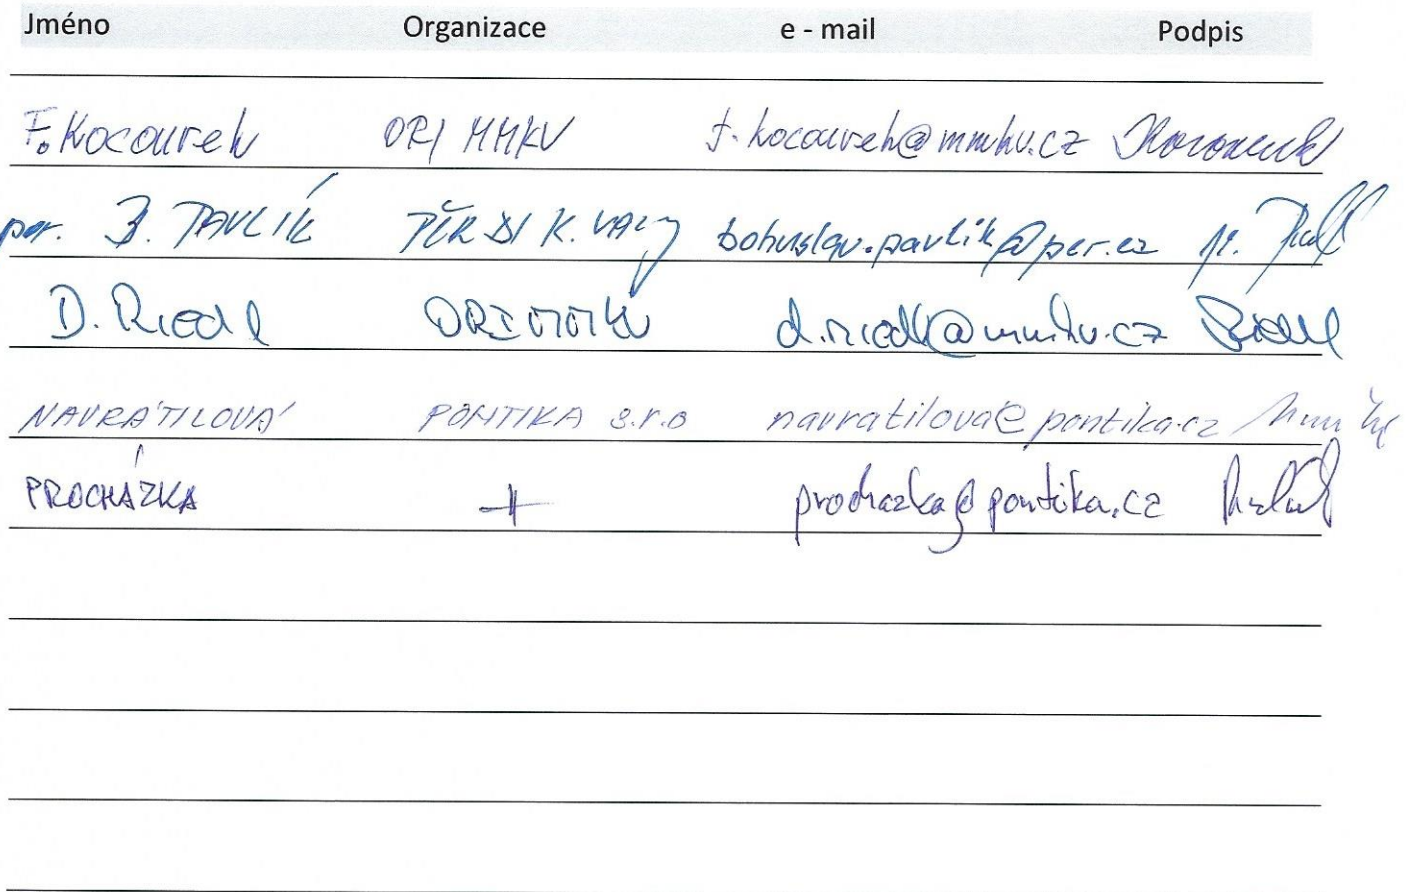 Jméno Organizace e - mail Podpis
F. Kocourek ORI MMKV f.kocourek@mmkv.cz
por. B. PAVLÍK PČR DI K. VARY bohuslav.pavlik@pcr.cz
D. Riedl ORI MMKV d.riedl@mmkv.cz Riedl
NAVRÁTILOVÁ PONTIKA s.r.o navratilova@pontika.cz
PROCHÁZKA prochazka@pontika.cz